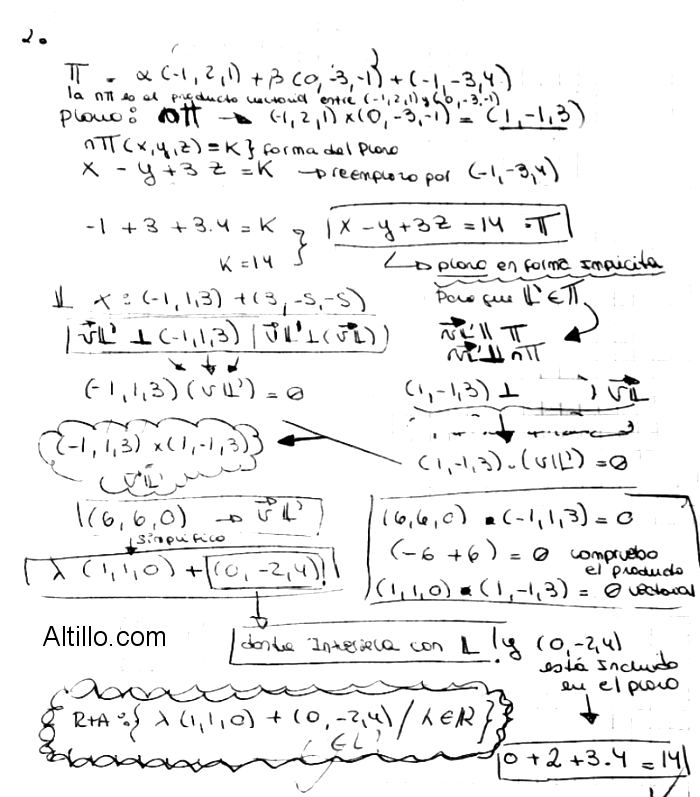 2.
π = α(-1,2,1) + β(0,-3,-1) + (-1,-3,4)
la nπ es el producto vectorial entre (-1,2,1) y (0,-3,-1)
plano: nπ → (-1,2,1)×(0,-3,-1) = (1,-1,3)
nπ(x,y,z) = K } forma del plano
x - y + 3z = K → reemplazo por (-1,-3,4)
-1 + 3 + 3.4 = K } x - y + 3z = 14 = π
K = 14
↳ plano en forma implicita
L x: (-1,1,3) + (3,-5,-5) Para que L' ∈ π
vL' ⊥ (-1,1,3) | vL' ⊥ (vL) vL' || π
vL' ⊥ nπ
(-1,1,3)(vL') = 0 (1,-1,3) ⊥ ) vL
(-1,1,3) × (1,-1,3)
vL'
(1,-1,3).(vL') = 0
(6,6,0) → vL'
simplifico
λ(1,1,0) + (0,-2,4)
(6,6,0) . (-1,1,3) = 0
(-6+6) = 0 compruebo el producto
(1,1,0) . (1,-1,3) = 0 vectorial
Altillo.com
donde Interseca con L y (0,-2,4)
está incluido
en el plano
RTA: { λ(1,1,0) + (0,-2,4) / λ ∈ R }
∈ L'
0 + 2 + 3.4 = 14